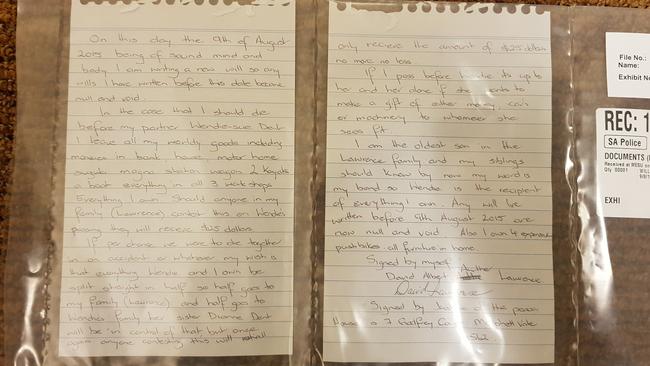 On this day the 9th of August
2015 being of sound mind and
body I am writing a new will so any
wills I have written before this date become
null and void.
In the case that I should die
before my partner Wendie-Sue Dent
I leave all my worldly goods including
monies in bank house, motor home
magna station wagon 2 kayaks
a boat everything in all 3 work shops
Everything I own. Should anyone in my
family (Lawrence) contest this on Wendies
passing they will receive $25 dollars.
If per chance we were to die together
in an accident or whatever my wish is
that everything Wendie and I own be
split straight in half so half goes to
my family (Lawrence) and half goes to
Wendies family her sister Dianne Dent
will be in control of that but once
again anyone contesting this will
only recieve the amount of $25 dollars
no more no less
If I pass before Wendie its up to
her and her alone if she wants to
make a gift of either money, cars
or machinery to whomever she
sees fit.
I am the oldest son in the
Lawrence family and my siblings
should know by now my word is
my bond so Wendie is the recipient
of everything I own. Any will Ive
written before 9th August 2015 are
now null and void. Also I own 4 expensive
pushbikes all furniture in home.
Signed by myself
David Albert Lawrence
David Lawrence
Signed by
House 7 Mitchell
5162
File No.:
Name:
Exhibit No
REC: 1
SA Police
DOCUMENTS (
Received at
Qty 00001 WILL
EXHI